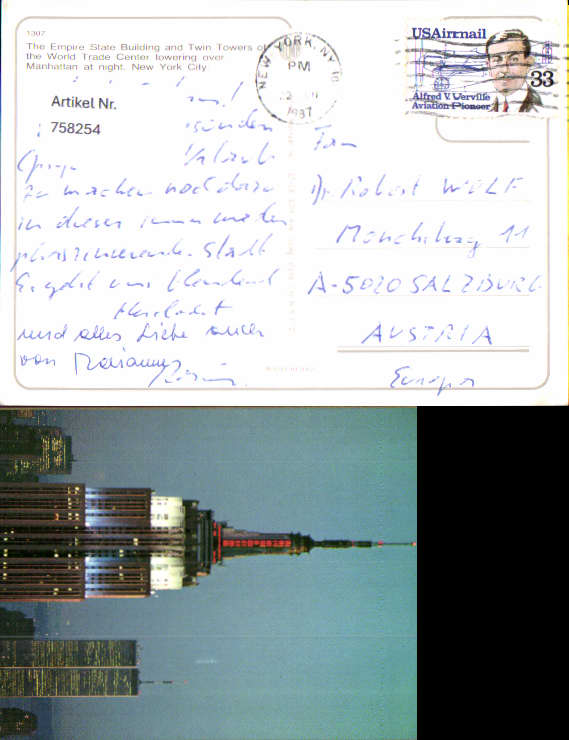 1307
The Empire State Building and Twin Towers of
the World Trade Center towering over
Manhattan at night. New York City
Artikel Nr.
758254
NEW YORK, NY
PM
1987
USAirmail
33
Alfred V. Verville
Aviation Pioneer
Urlaub
zu machen noch dazu
in dieser
Stadt
Es grüßt
Herzlichst
und alles Liebe auch
von Marianne
Frau
Dr. Robert WOLF
Mönchsberg 11
A-5020 SALZBURG
AUSTRIA
Europa